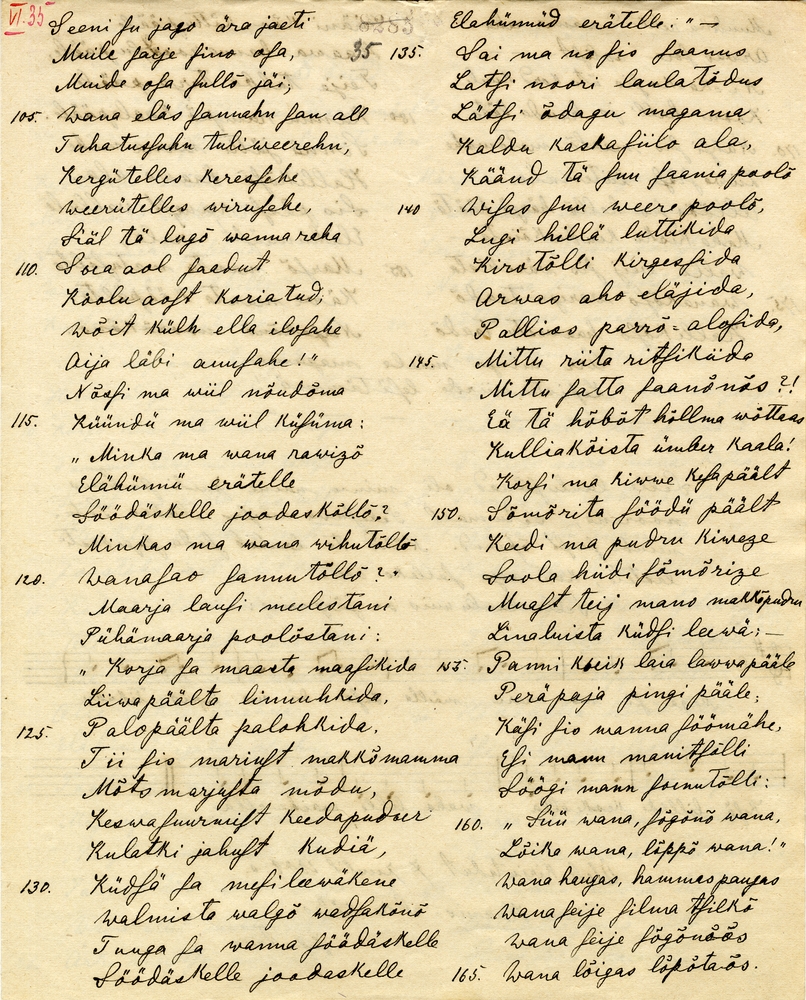 VI. 35
Seeni su jago ära jaeti
Muile saije sino osa,
35
Muide osa sullõ jäi,
105. Wana eläs sannahn san all
Tuhatussuhn tuliweerehn,
Kergütelles keressehe
Weerütelles wirusehe,
Siäl tä lugõ wanna reha
110. Soea aol saadut
Koolu aost koriatud;
Wõit külh ella ilosahe
Aija läbi auusahe!"
Nõssi ma wiil nõudõma
115. Küündü ma wiil küsüma:
„Minka ma wana rawizõ
Elähünnü erätelle
Söödäskelle joodaskõllõ?
Minkas ma wana wihutõllõ
120. Wanasao sannutõllõ?"
Maarja lausi meelestani
Pühämaarja poolõstani:
„Korja sa maasta maasikida
Liiwapäälta linnuhkida,
125. Palopäälta palohkida.
Tii sis mariust makkõmamma
Mõtsmarjusta mõdu,
Keswasuurmist keedapudser
Kulatski jahust kudiä,
130. Küdsä sa mesileewäkene
Walmista walgõ wadsakõnõ
Tuuga sa wanna söödäskelle
Söödäskelle joodaskelle
Elahünnüd erätelle." —
135. Sai ma no sis saanus
Latsi noori laulatõdus
Lätsi õdagu magama
Kaldu kaskasiilo ala,
Käänd tä suu saania poolõ
140 Wisas suu weere poolõ,
Lugi hillä luttikida
Kirotõlli kirgessida
Arwas aho eläjida,
Pallios parrõ-alosida,
145. Mittu riita ritsikiida
Mittu satta saanõnõs?!
Eä tä hõbõt hõllma wõttaas
Kulliakõista ümber kaala!
Korsi ma kiwwe kesapäält
150. Sõmõrita söödü päält
Keedi ma pudru kiweze
Soola hiidi sõmõrize
Muast teij mano makkõpudru
Linaluista küdsi leewä; —
155. Panni kõik laia lawwapääle
Peräpaja pingi pääle;
Käsi sio wanna söömähe,
Esi mann manitsõlli
Söögi mann soenutõlli:
160. „Süü wana, sõgõnõ wana,
Lõika wana, lõppõ wana!"
Wana haugas, hammas paugas
Wana seije silma tsilkõ
Wana seije sõgõnõõs
165. Wana lõigas lõpõtaõs.